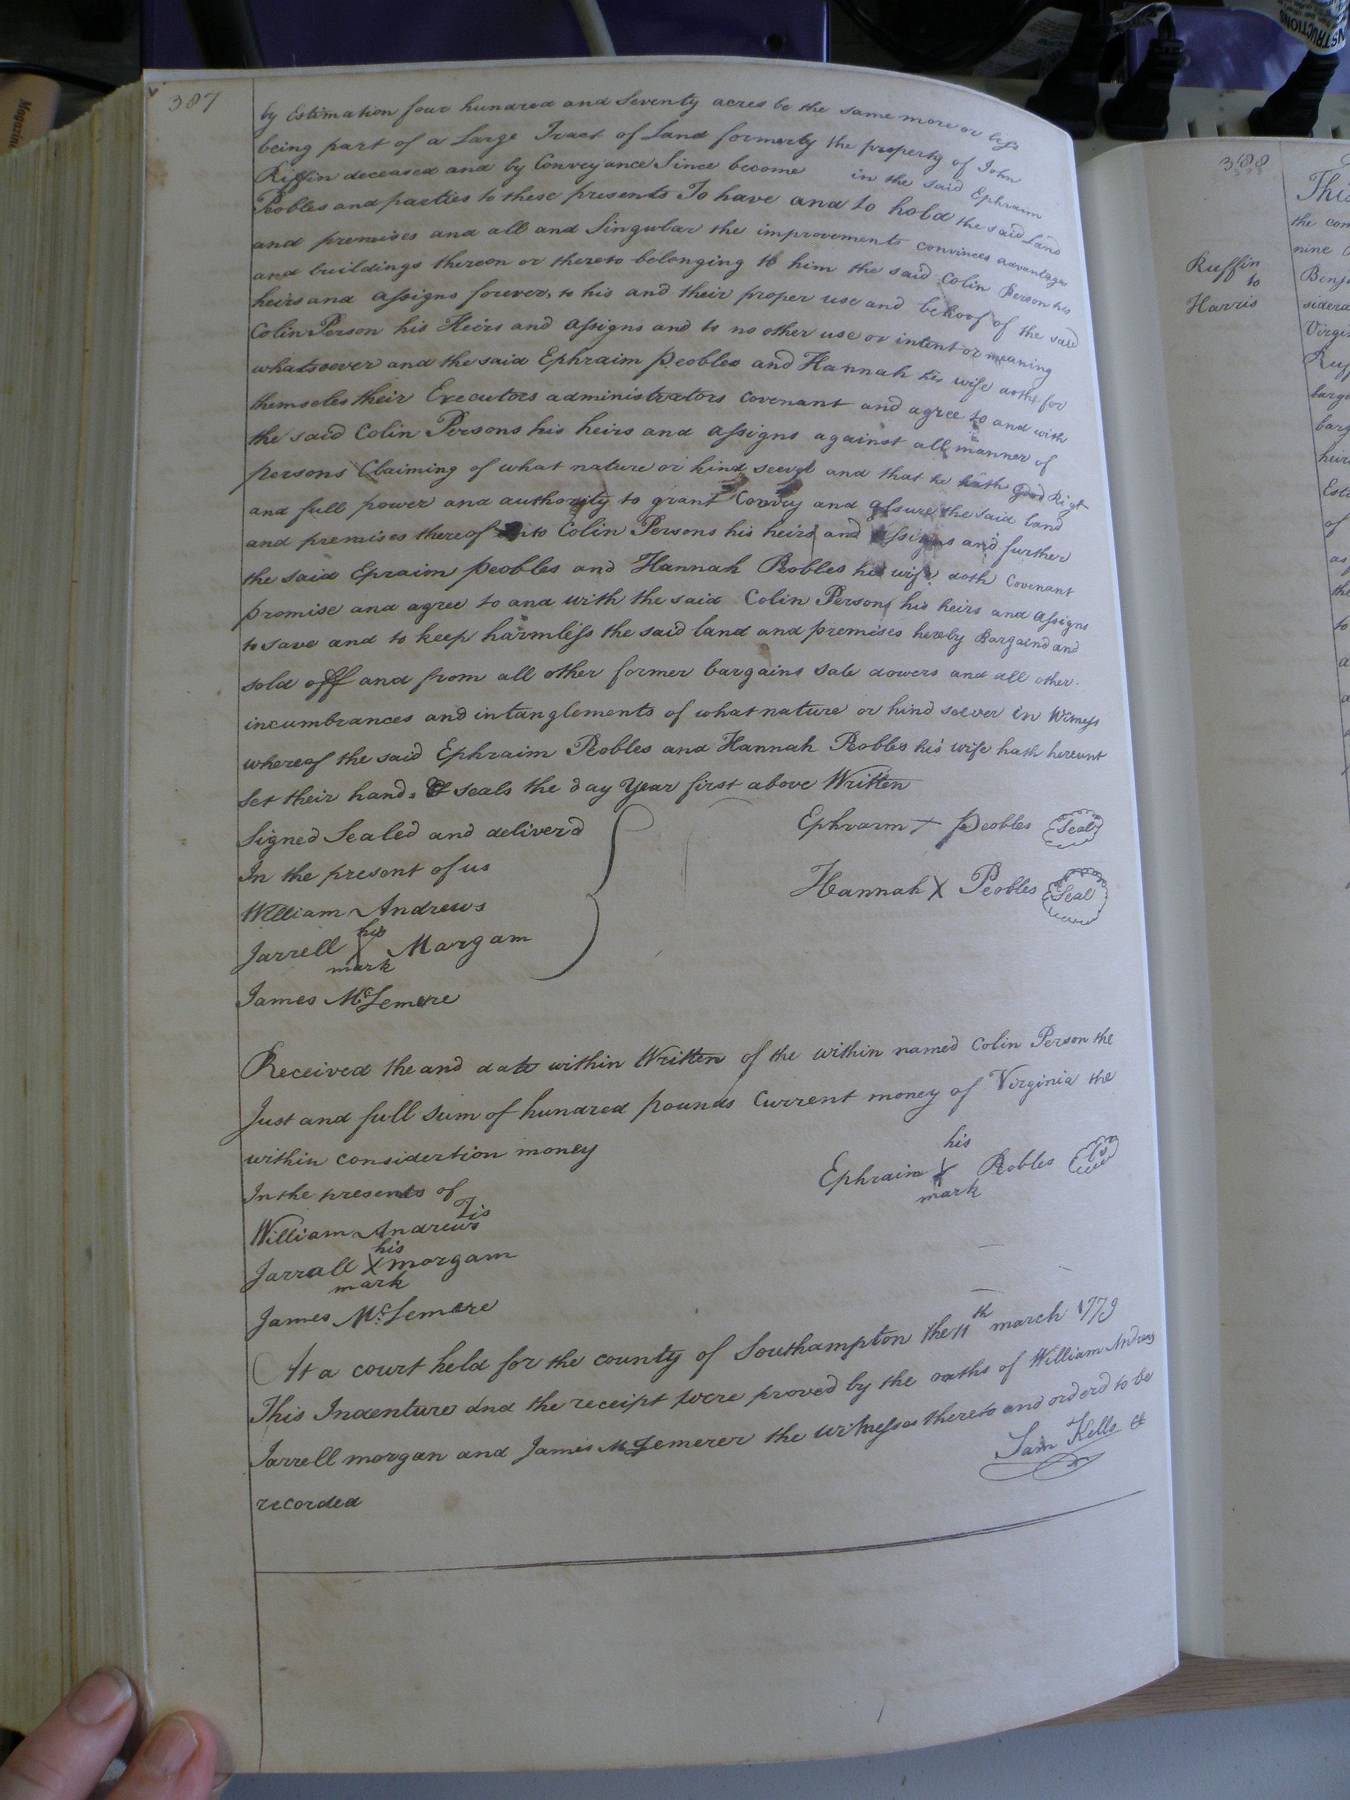 387
by Estimation four hundred and Seventy acres be the same more or less
being part of a Large Tract of Land formerly the property of John
Riffin deceased and by Conveyance Since become in the said Ephraim
Peobles and parties to these presents To have and to hold the said Land
and premises and all and Singular the improvements convinces advantages
and buildings thereon or thereto belonging to him the said Colin Person his
heirs and assigns forever, to his and their proper use and behoof of the said
Colin Person his Heirs and assigns and to no other use or intent or meaning
whatsoever and the said Ephraim Peobles and Hannah his wife doth for
themseles their Executors administrators covenant and agree to and with
the said Colin Persons his heirs and assigns against all manner of
persons Claiming of what nature or kind and that he hath good Rigt
and full power and authority to grant Convey and assure the said land
and premises thereof Colin Persons his heirs and assigns and further
the said Epraim Peobles and Hannah Peobles his wife doth Covenant
promise and agree to and with the said Colin Persons his heirs and assigns
to save and to keep harmless the said land and premises hereby Bargaind and
sold off and from all other former bargains sale dowers and all other
incumbrances and intanglements of what nature or kind soever in Witness
whereof the said Ephraim Peobles and Hannah Peobles his wife hath hereunt
Set their hands & seals the day Year first above Written
Signed Sealed and deliverd
In the present of us
Ephraim + Peobles Seal
Hannah X Peobles Seal
William Andrews
his
Jarrell X Morgam
mark
James McLemore
Received the and date within Written of the within named Colin Person the
Just and full sum of hundred pounds Current money of Virginia the
within considertion money
In the presents of
his
Ephraim X Peobles
mark
William Andrews
his
Jarrall X morgam
mark
James McLemore
At a court held for the county of Southampton the 11th march 1779
This Indenture and the receipt were proved by the oaths of William Andrews
Jarrell morgan and James McLemerer the witnesses thereto and orderd to be
recorded
Sam Kello
388
Ruffin
to
Harris
This
the con
nine
Benj
sidera
Virgi
Ruf
barg
barg
heir
Esti
of
as
the
to